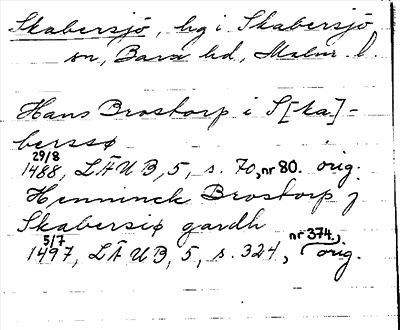 Skabersjö, hg i Skabersjö
sn, Bara hd, Malm. l.
Hans Brostorp i S[ka]-
berssø
29/8
1488, LÄUB, 5, s. 70, nr 80. orig.
Henninck Brostorp j
Skabersiø gardh
5/7 nr 374.
1497, LÄUB, 5, s. 324, orig.